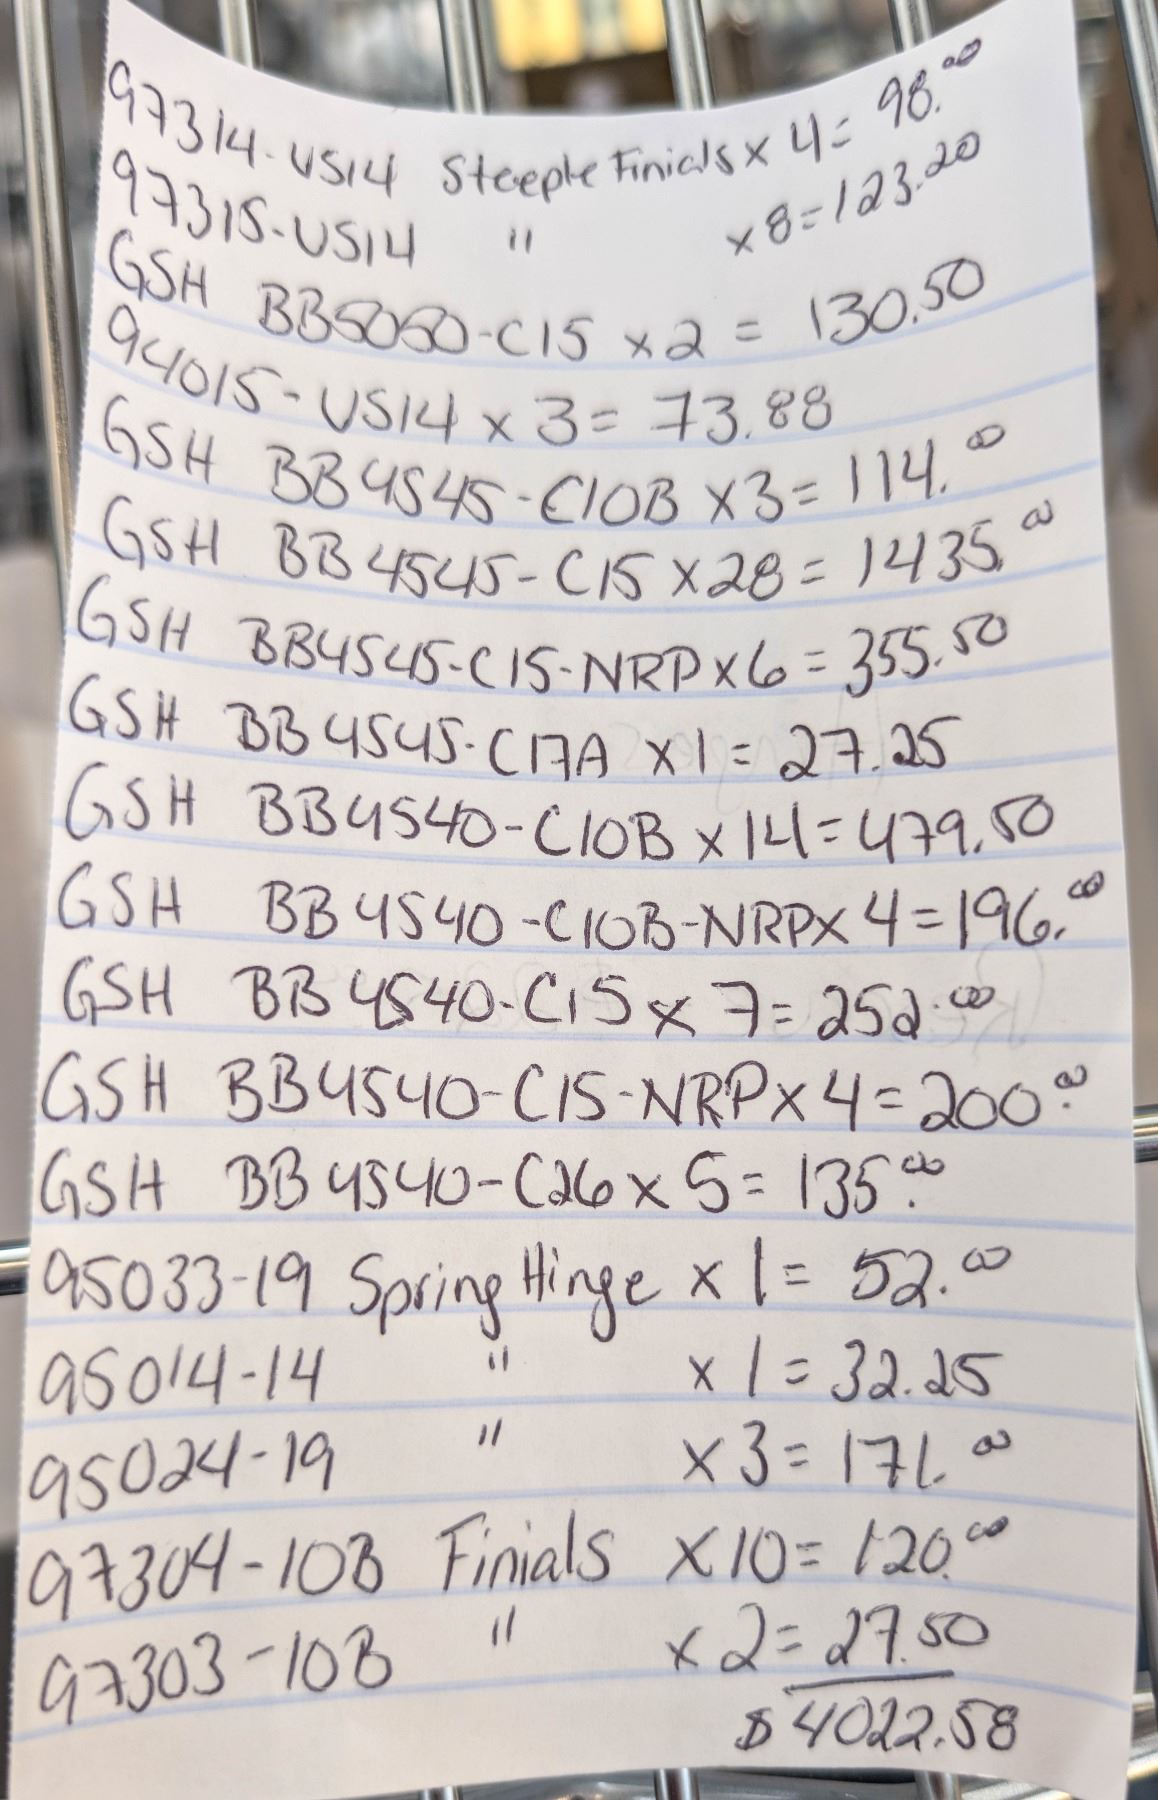 97314-US14 Steeple Finials x 4 = 98.00
97315-US14 " x 8 = 123.20
GSH BB5050-C15 x 2 = 130.50
94015-US14 x 3 = 73.88
GSH BB4545-C10B x 3 = 114.00
GSH BB4545-C15 x 28 = 1435.00
GSH BB4545-C15-NRP x 6 = 355.50
GSH BB4545-C17A x 1 = 27.25
GSH BB4540-C10B x 14 = 479.50
GSH BB4540-C10B-NRP x 4 = 196.00
GSH BB4540-C15 x 7 = 252.00
GSH BB4540-C15-NRP x 4 = 200.00
GSH BB4540-C26 x 5 = 135.00
95033-19 Spring Hinge x 1 = 52.00
95014-14 " x 1 = 32.25
95024-19 " x 3 = 171.00
97304-10B Finials x 10 = 120.00
97303-10B " x 2 = 27.50
$4022.58